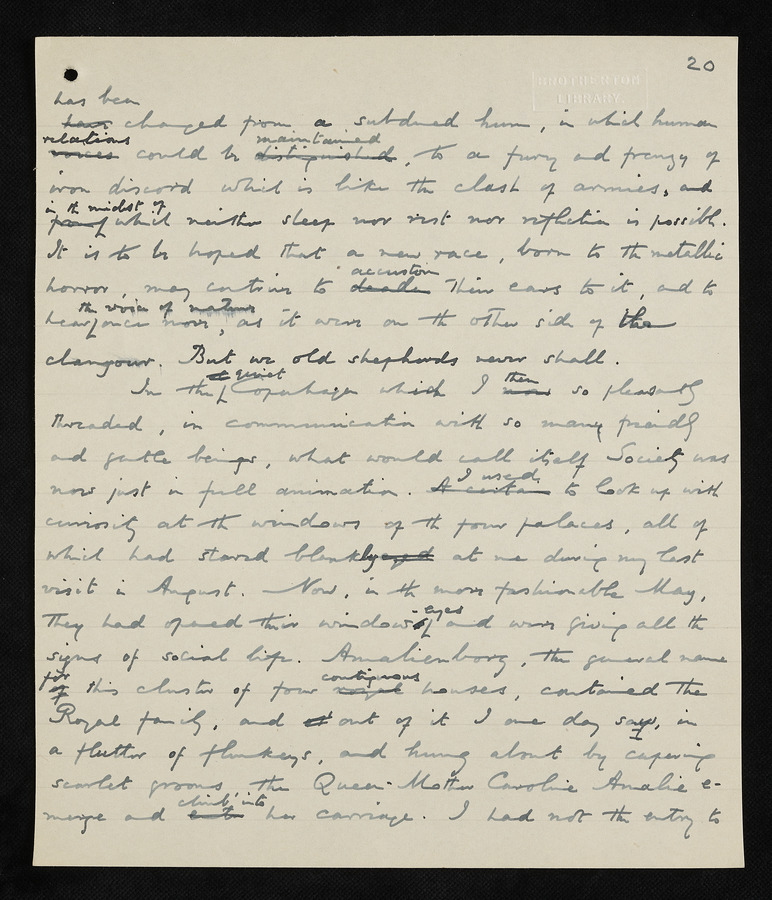 20
BROTHERTON
LIBRARY.
has been
have changed from a subdued hum, in which human
relations maintained
voices could be distinguished, to a fury and frenzy of
iron discord which is like the clash of armies, and
in the midst of
which neither sleep nor rest nor reflection is possible.
It is to be hoped that a new race, born to the metallic
accustom
horror, may contrive to deaden their ears to it, and to
the voice of nature
hear once more, as it were on the other side of the
clangour. But we old shepherds never shall.
at quiet then
In the Copenhagen which I was so pleasantly
threaded, in communication with so many friendly
and gentle beings, what would call itself Society was
I used
now just in full animation. A certain to look up with
curiosity at the windows of the four palaces, all of
which had stared blankly eyed at me during my last
visit in August. Now, in the more fashionable May,
-eyes
they had opened their window and were giving all the
signs of social life. Amalienborg, the general name
for contiguous
of this cluster of four royal houses, contained the
Royal family, and at out of it I one day saw, in
a flutter of flunkeys, and hung about by capering
scarlet grooms, the Queen-Mother Caroline Amalie e-
climb into
merge and enter her carriage. I had not the entry to